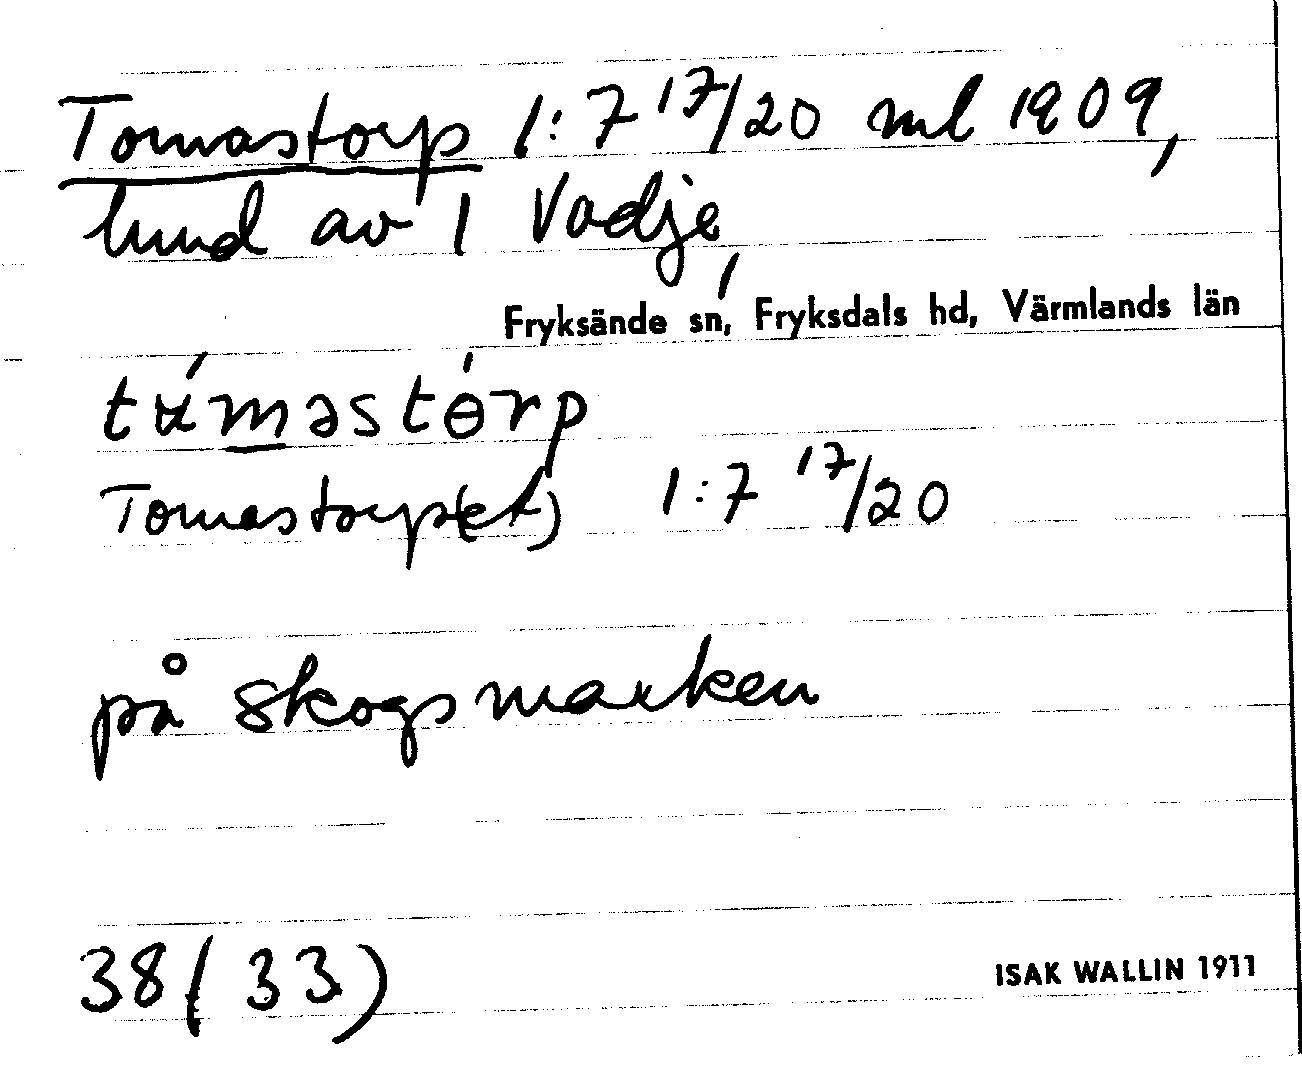 Tomastorp 1:7 17/20 ml 1909,
lund av 1 Vadje,
Fryksände sn, Fryksdals hd, Värmlands län
tɷ́məstɵ́rp
Tomastorp(et) 1:7 17/20
på skogsmarken
38(33)
ISAK WALLIN 1911